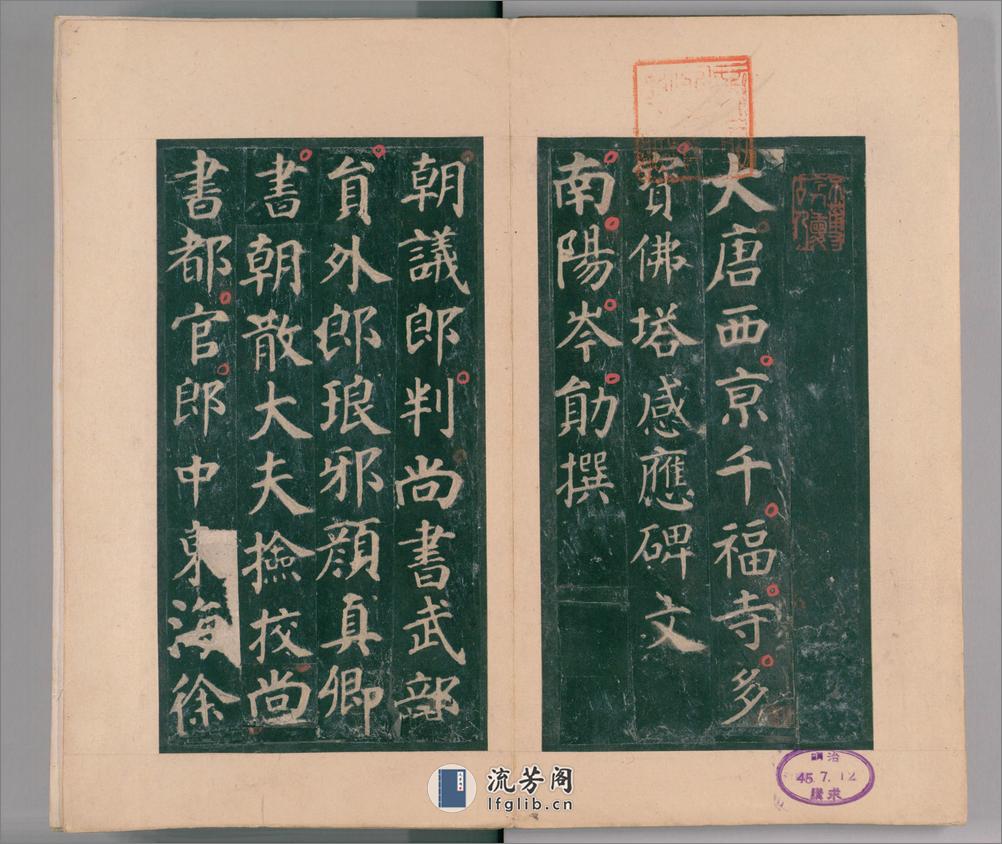 大唐西亰千福寺多
寳佛塔感應碑文
南陽岑勛撰
朝議郎判尚書武部
貟外郎琅邪顔真卿
書朝散大夫撿挍尚
書都官郎中東海徐
明治
45.7.12
購求
流芳阁
lfglib.cn